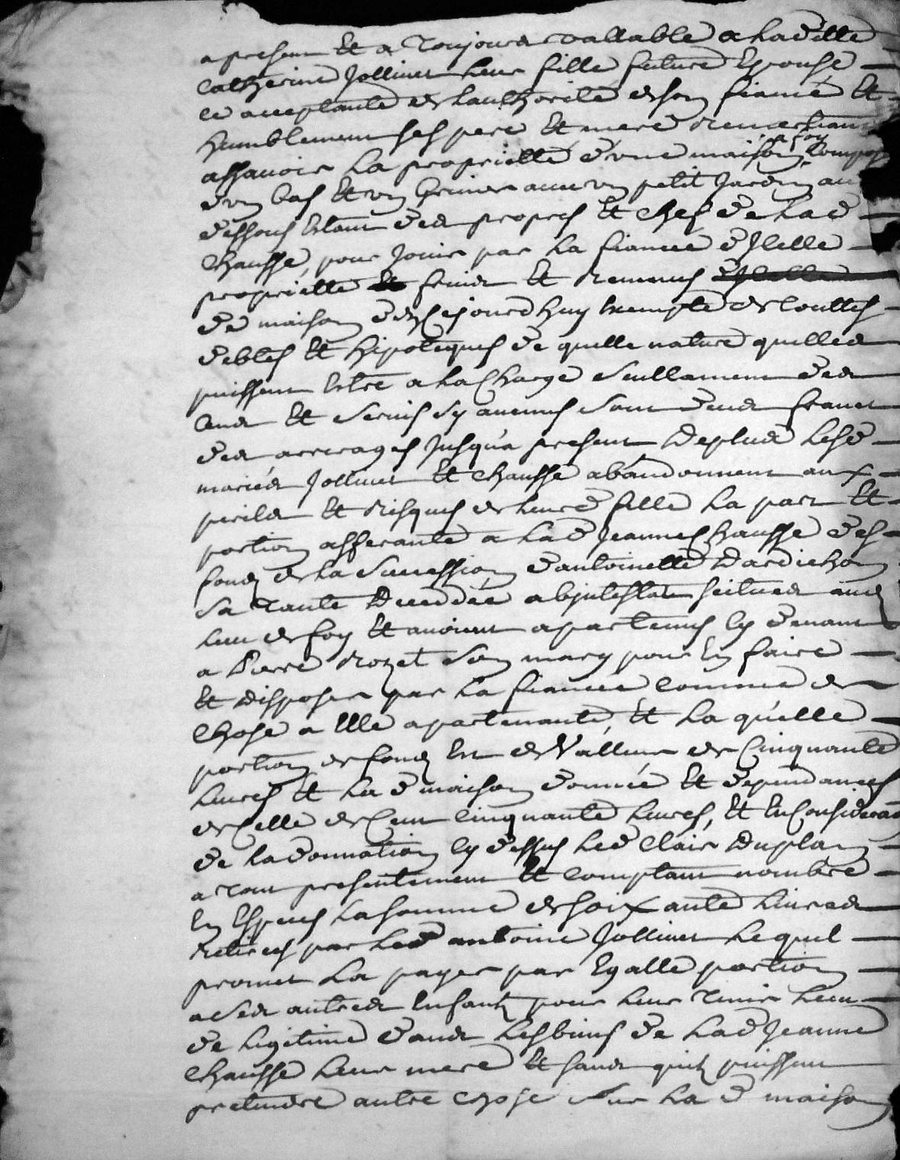 a present et a toujours vallable a lad. fille
Catherine Jollivet leur fille future Epouse
ce acceptante de lauthorité de son fiancé et
humblement ses pere et mere remerciant
assavoir la proprietté d'une maison a foy Compozé
d'un bas et un grenier avec un petit Jardin au
dessous Estant des propres et chef de lad.
Chausse, pour Jouir par la fiancée d'Jcelle
proprietté fruits et revenus
de maison dez cejourdhuy exempte de touttes
debtes et hipoteques de quelle nature quelles
puissent Estre a la Charge seullement des
Cens et servis sy aucuns sont deus francs
des arrerages jusqu'a present deplus lesd.
mariés Jollivet et Chausse abandonnent aux
perils et risques de leurd. fille la part et
portion afferante a lad. Jeanne Chausse des
fonds de la succession d'antoinette Dardichon
sa tante Deceddée abjntestat scitués aud.
lieu de foy et avoient apartenus cy devant
a Pierre rozet son mary pour En faire
Et disposer par la fiancée comme de
Chose a Elle apartenante, et la quelle
portion de fonds Est de Valleur de Cinquante
livres et la d. maison donnée et dependances
de Celle de Cent Cinquante livres, et En Consideraon
de la donnation cy dessus led. Clair Duplan
a tout presentement et comptant nombré
En Especes la somme de soixante livres
retirés par led. antoine Jollivet lequel
promet la payer par Egalle portion
a ses autres Enfants pour leur tenir lieu
de legitime dans les biens de lad. Jeanne
Chausse leur mere et sans quils puissent
pretendre autre chose sur la d. maison